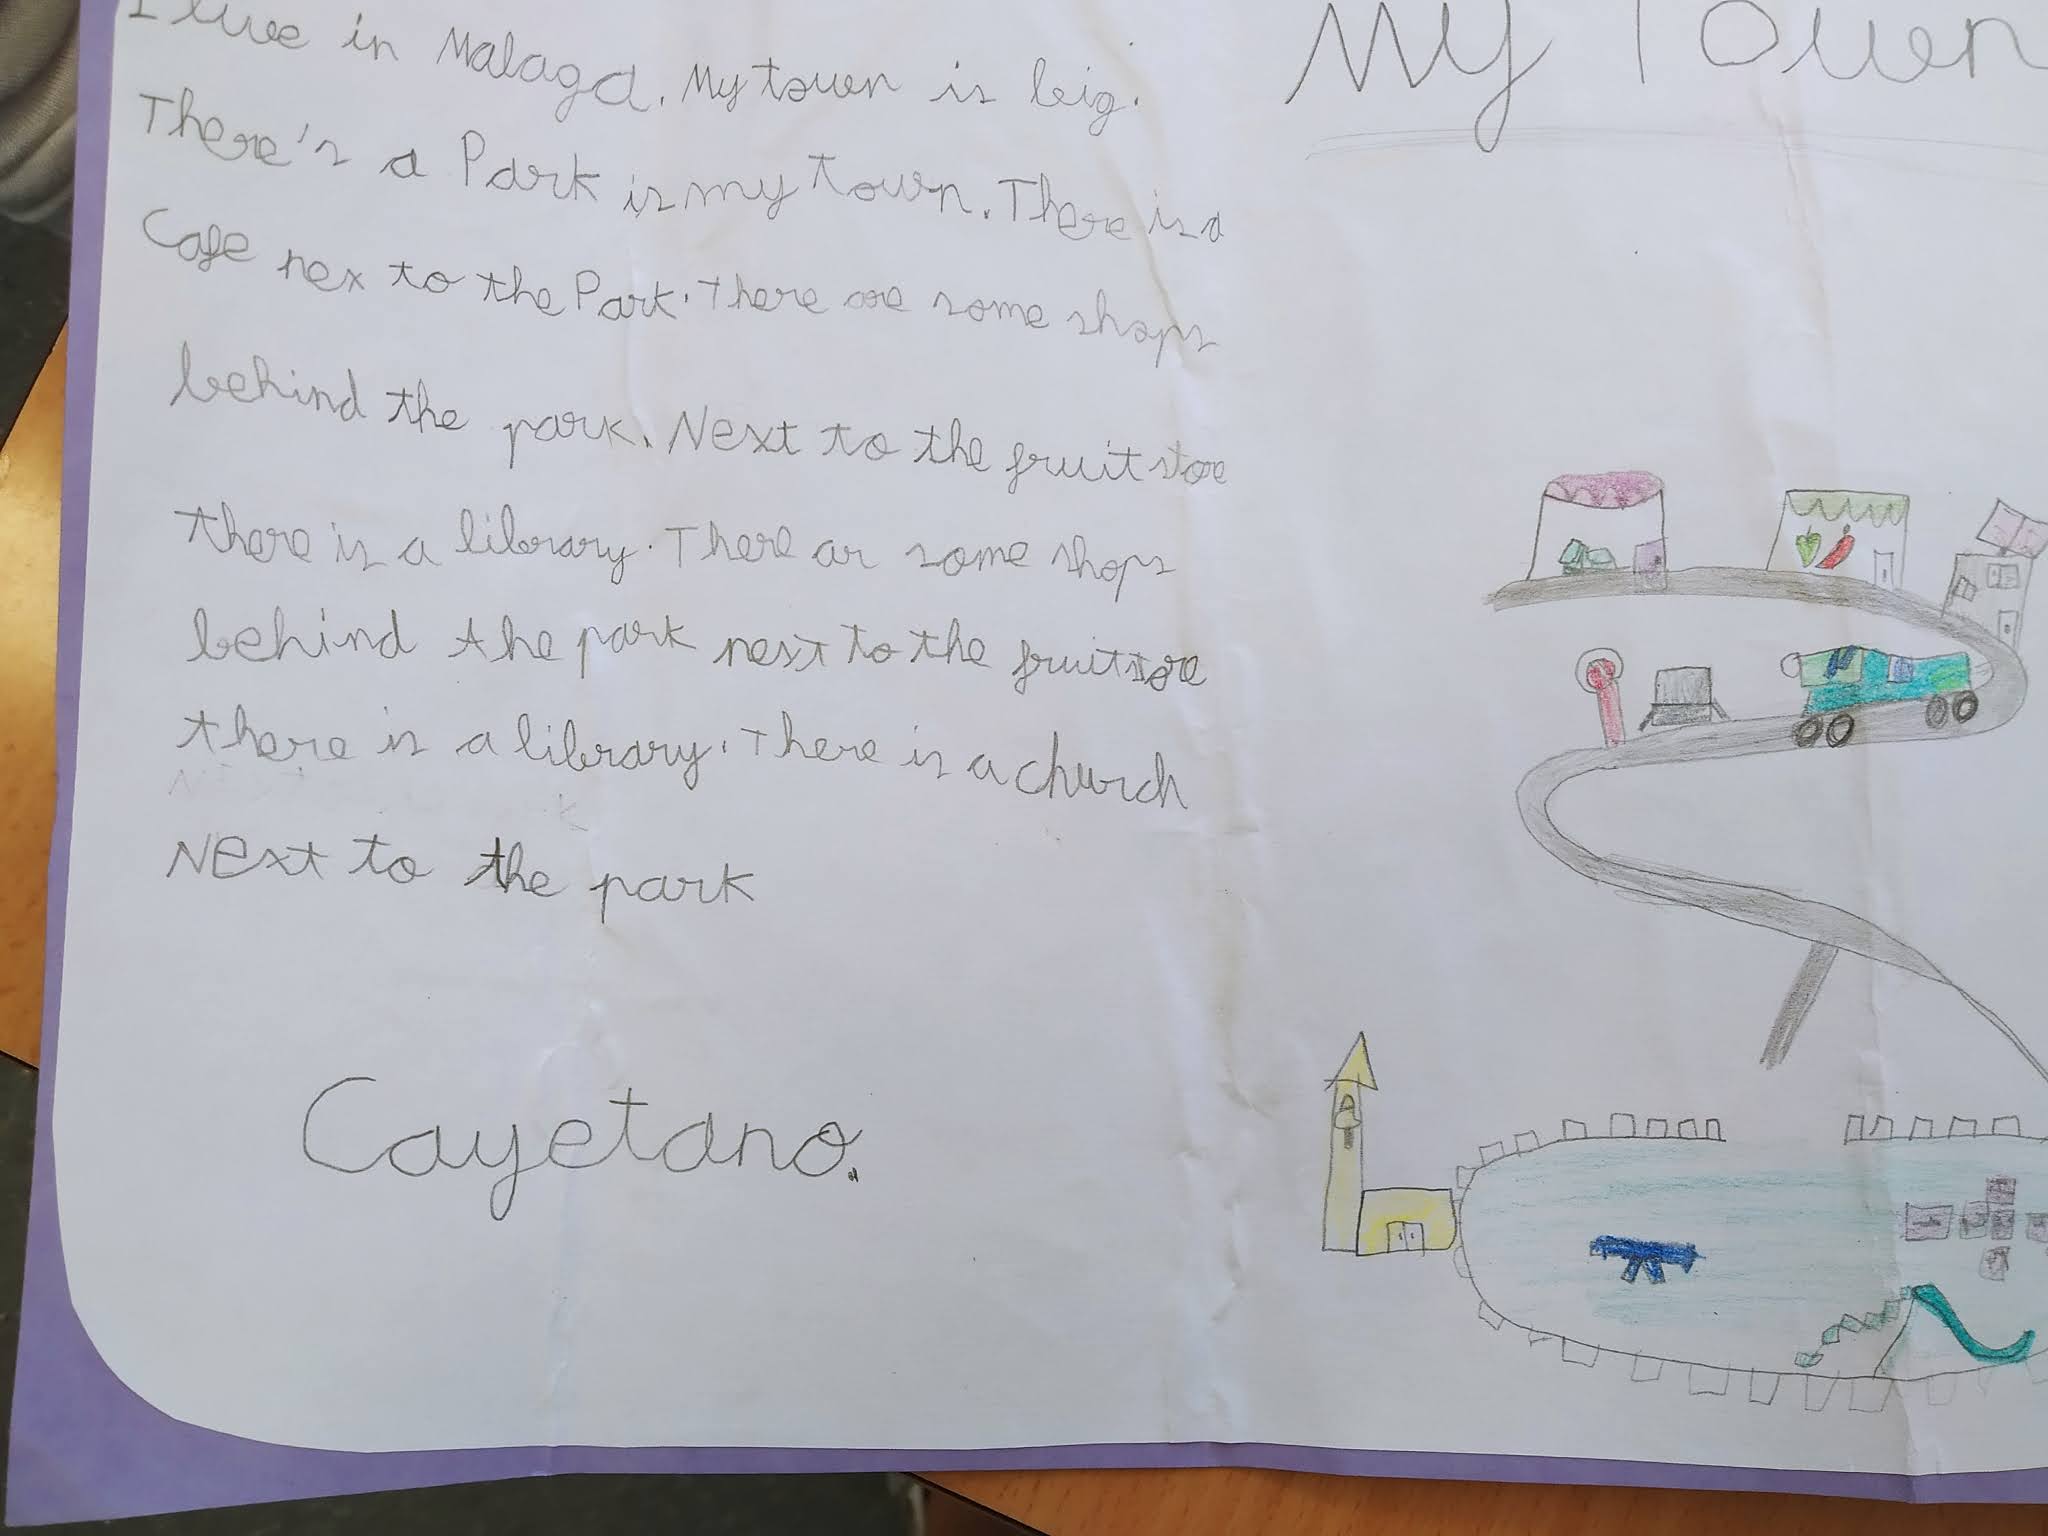 I live in Malaga. My town is big.
There's a Park is my town. There is a
Cafe nex to the Park. There are some shops
behind the park. Next to the fruit store
there is a library. There ar some shops
behind the park next to the fruit store
there is a library. There is a church
Next to the park
Cayetano.
My Town